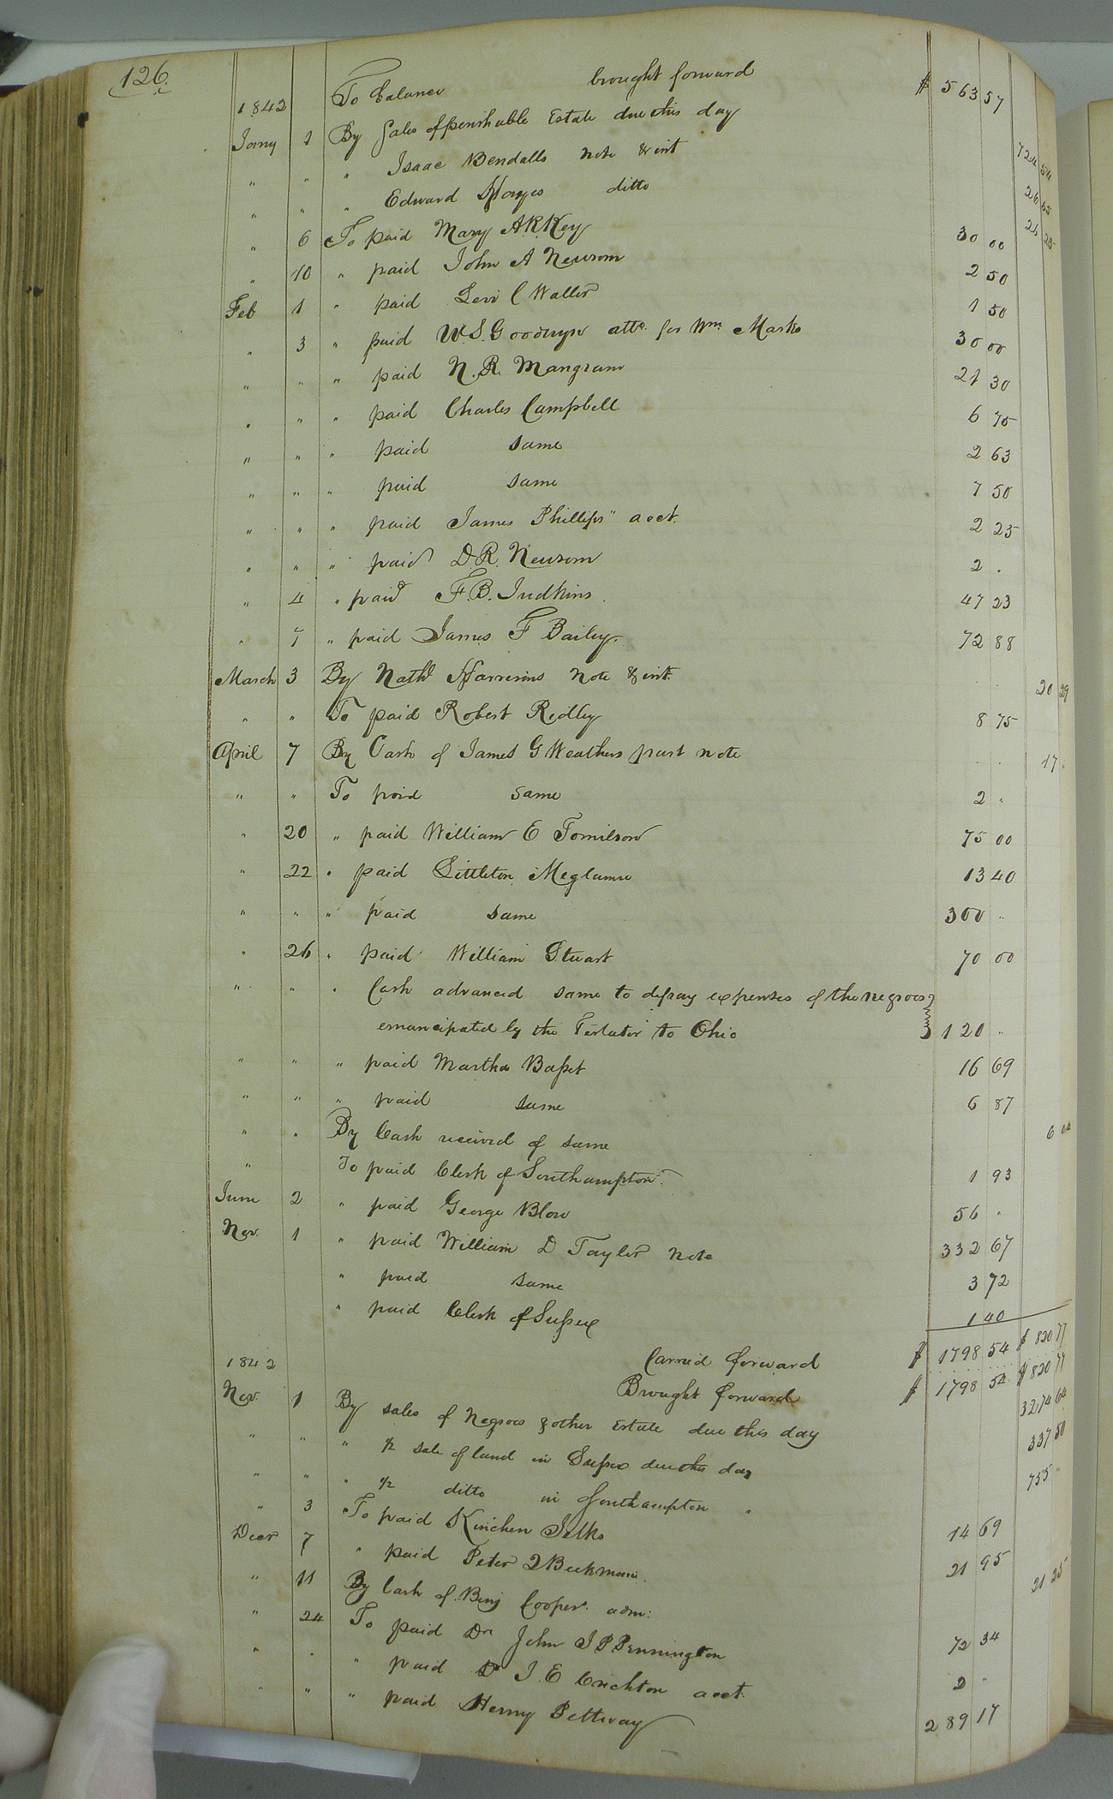 126.
To balance brought forward $ 563 57
1842
Jany 1 By Sales of perishable Estate due this day 724 54
" " " Isaac Bendalls note & int 26 65
" " " Edward Hayes ditto
" 6 To paid Mary A R Key 30 00
" 10 " paid John A Newsom 2 50
Feb 1 " paid Levi C Waller 1 50
" 3 " paid W. S. Goodwyn atto for Wm Marks 30 00
" " " paid N. R. Mangram 21 30
" " " paid Charles Campbell 6 75
" " " paid same 2 63
" " " paid same 7 50
" " " paid James Phillips" acct. 2 25
" " " paid D. R. Newsom 2 .
" 4 " paid F. B. Judkins. 47 23
" 7 " paid James F Bailey. 72 88
March 3 By Nathl Harrisons note & int. 20 29
" " To paid Robert Ridley 8 75
April 7 By Cash of James G Weathers part note 17 .
" " To paid same 2 .
" 20 " paid William E Tomilson 75 00
" 22 " paid Littleton Meglamre 13 40
" " " paid same 300 "
" 26 " paid William Stuart 70 00
" " " Cash advanced same to defray expenses of the negroes
emancipated by the Testator to Ohio 120 "
" " " paid Martha Basset 16 69
" " " paid same 6 87
" " By Cash received of same
" To paid Clerk of Southampton. 1 93
June 2 " paid George Blow 56 "
Nov. 1 " paid William D Taylor note 332 67
" paid same 3 72
" paid Clerk of Sussex 1 40
Carried forward $ 1798 54 $ 820 77
1842 Brought forward $ 1798 54 $ 820 77
Nov. 1 By sales of Negroes & other Estate due this day 3214 64
" " " ½ sale of land in Sussex due this day 337 50
" " " ½ ditto in Southampton " 755 "
" 3 To paid Kinchen Jelks 14 69
Decr 7 " paid Peter Z Beekman. 21 95
" 11 By Cash of Benj Cooper. adm: 21 25
" 24 To paid Dr John J P Pennington 72 34
" " " paid Dr J. E Crichton acct. 2 "
" " " paid Henry Pettway 289 17